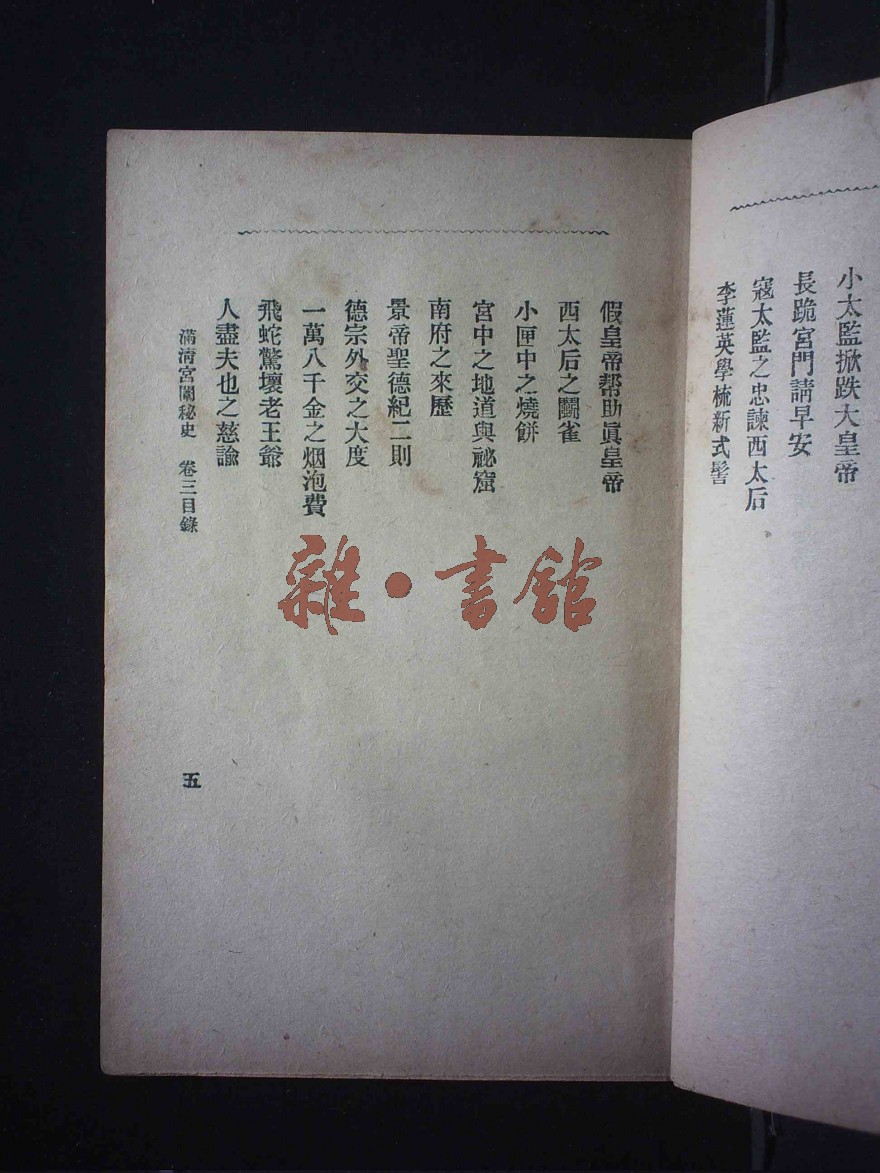 小太監掀跌大皇帝
長跪宮門請早安
寇太監之忠諫西太后
李蓮英學梳新式髻
假皇帝帮助眞皇帝
西太后之鬭雀
小匣中之燒餅
宮中之地道與祕窟
南府之來歷
景帝聖德紀二則
德宗外交之大度
一萬八千金之烟泡費
飛蛇驚壞老王爺
人盡夫也之慈諭
滿淸宮闈秘史 卷三目錄
五
雜·書館